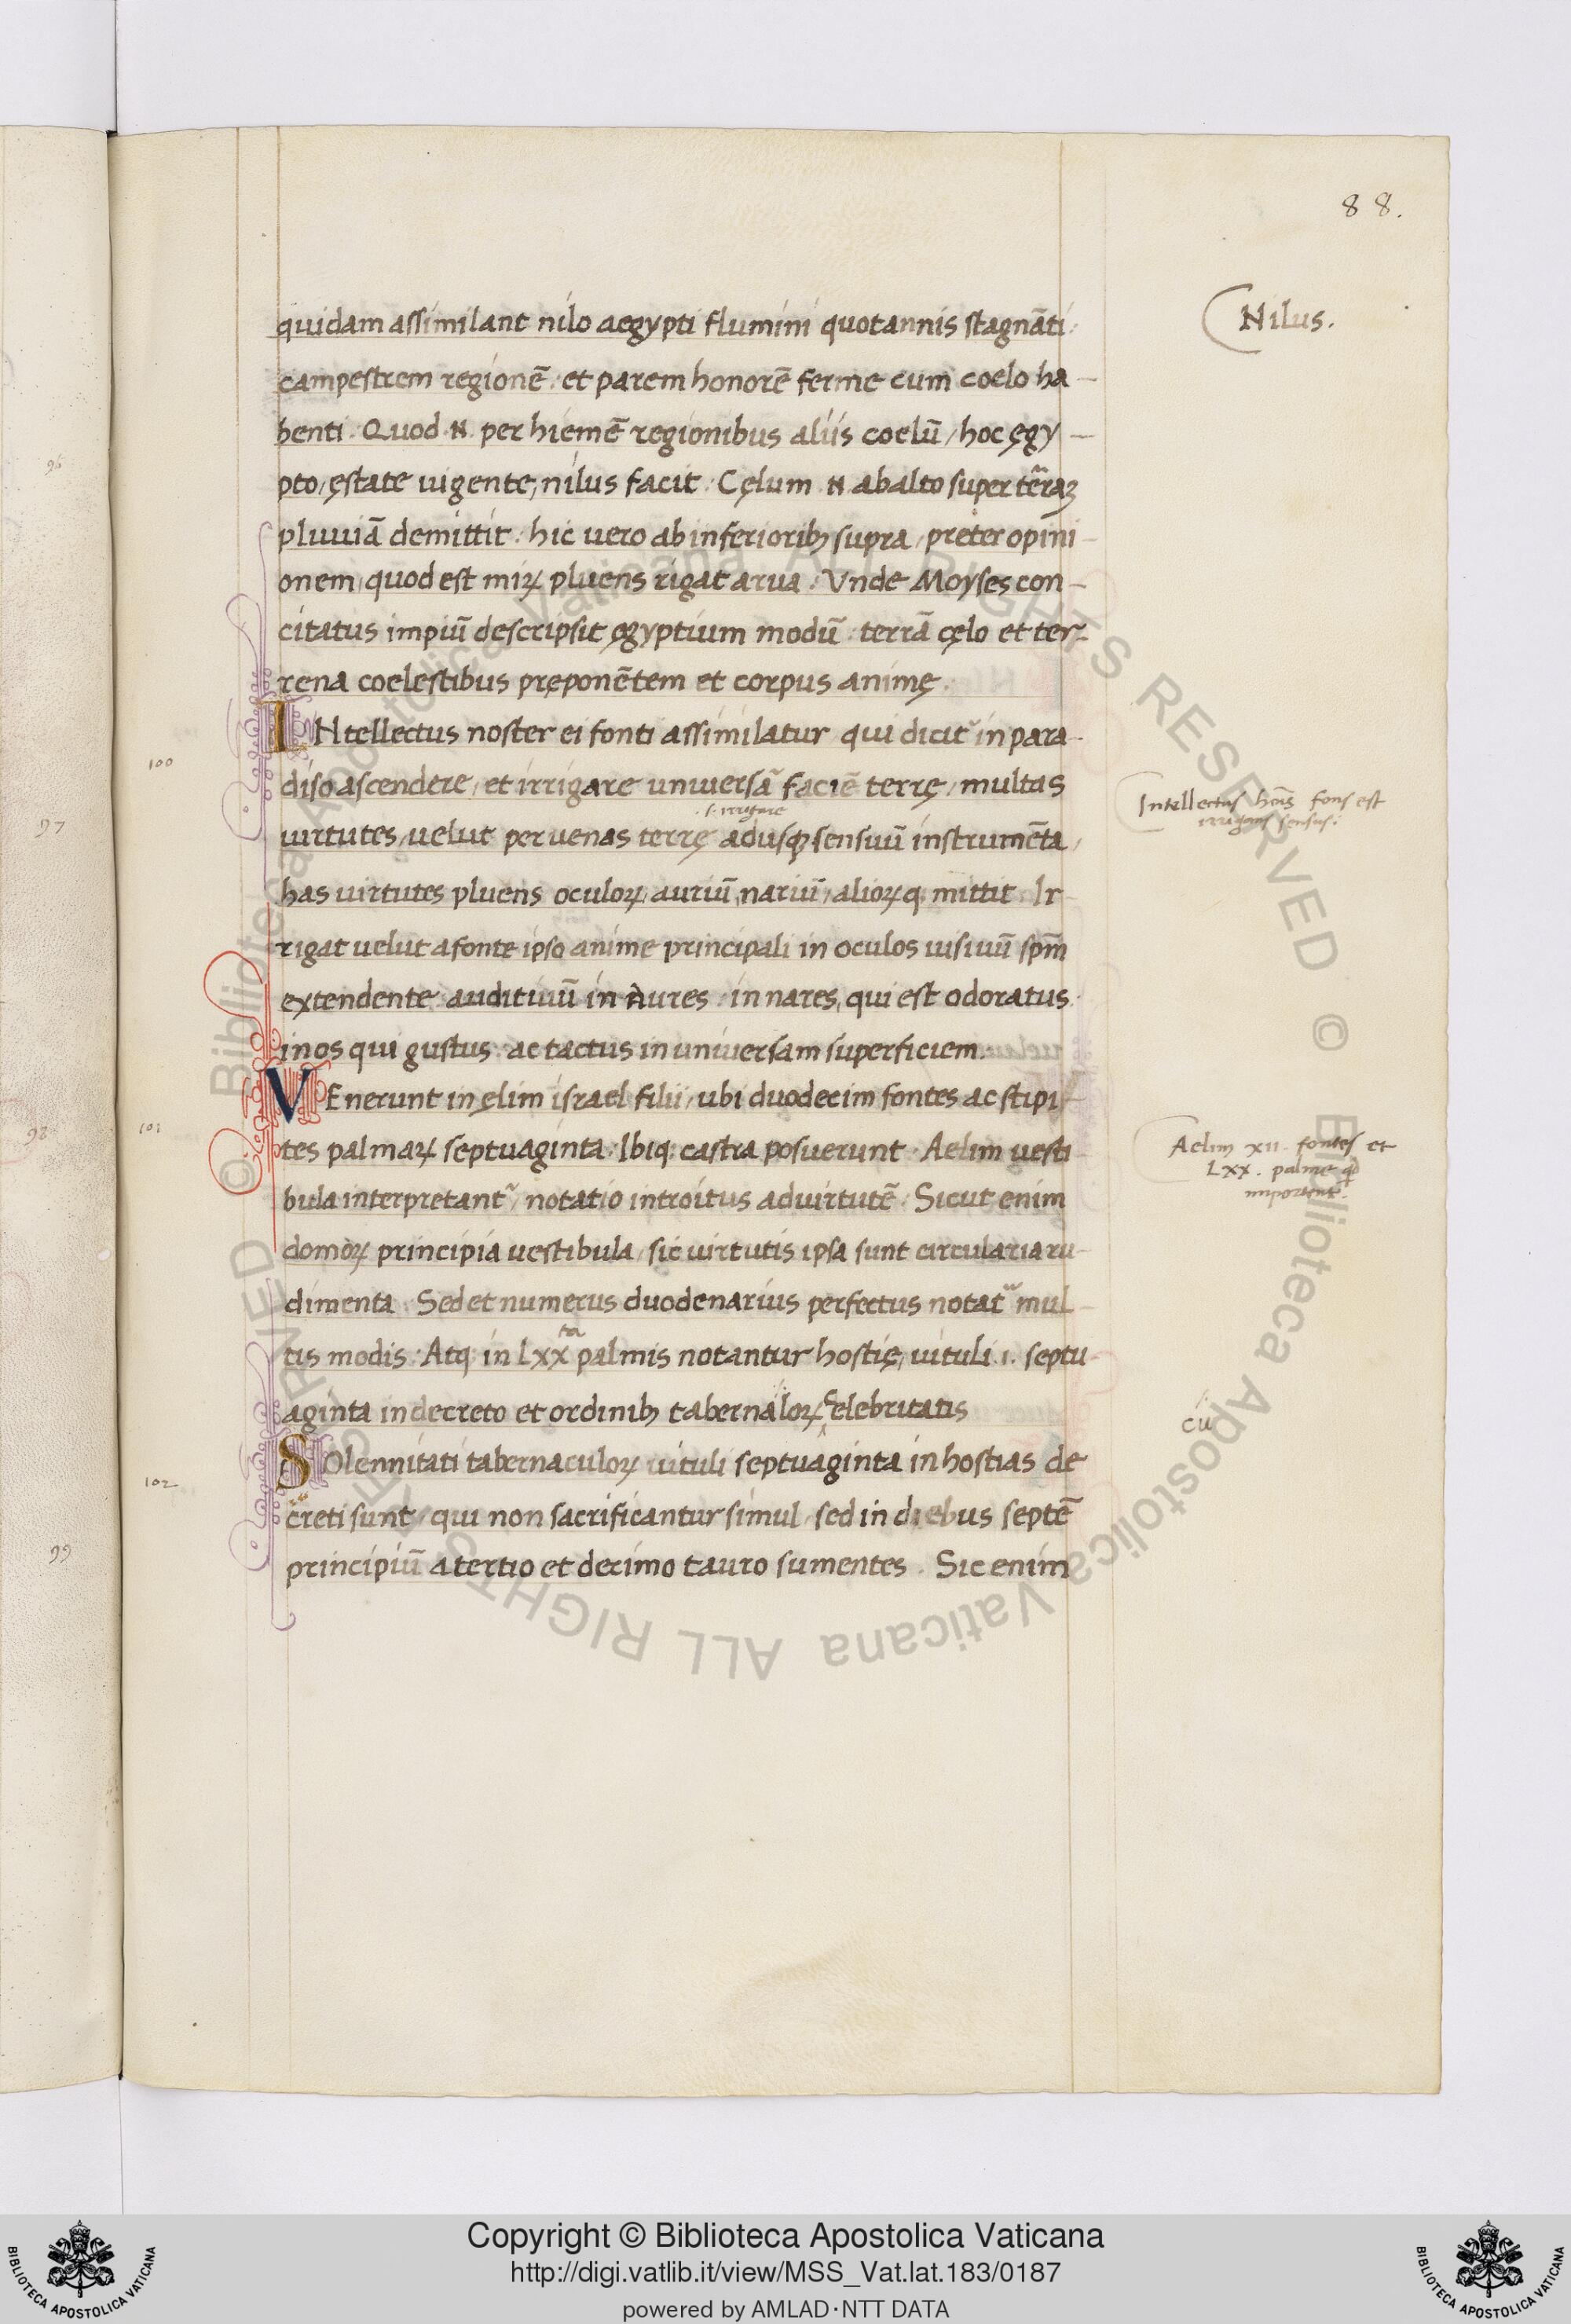 88.
quidam assimilant nilo aegypti flumini quotannis stagnāti:
Nilus.
campestrem regionē: et parem honorē ferme cum coelo ha-
benti. Quod .N. per hiemē regionibus aliis coelū, hoc ęgy-
pto, ęstate uigente, nilus facit. Cęlum .N. ab alto super terraꝫ
pluuiā demittit: hic uero ab inferiorib; supra, preter opini-
onem, quod est miꝝ pluens rigat arua. Vnde Moyses con-
citatus impiū descripsit ęgyptium modū: terrā cęlo et ter-
rena coelestibus pręponētem et corpus animę.
100
INtellectus noster ei fonti assimilatur qui dicit᷑ in para-
diso ascendere, et irrigare uniuersā faciē terrę, multas
Intellectus hoīs fons est
irrigans sensus:
.s. irrigare
uirtutes, uelut per uenas terrę adusq; sensuū instrumēta,
has uirtutes pluens oculoꝝ, auriū, nariū, alioꝝq; mittit. Ir-
rigat uelut a fonte ipso anime principali in oculos uisiuū spm̄
extendente: auditiuū in aures: in nares, qui est odoratus:
in os qui gustus: ac tactus in uniuersam superficiem.
101
VEnerunt in ęlim israel filii, ubi duodecim fontes ac stipi-
tes palmaꝝ septuaginta: Ibiq; castra posuerunt. Aelim uesti-
Aelim xii. fontes et
Lxx. palme qd
important.
bula interpretant᷑, notatio introitus ad uirtutē. Sicut enim
domoꝝ principia uestibula, sic uirtutis ipsa sunt circularia ru-
dimenta. Sed et numerus duodenarius perfectus notat᷑ mul-
tis modis: Atq; in Lxxta palmis notantur hostię, uituli .i. septu-
aginta in decreto et ordinib; tabernaloꝝ celebritatis
cu
102
SOlennitati tabernaculoꝝ uituli septuaginta in hostias de-
creti sunt, qui non sacrificantur simul, sed in diebus septē
principiū a tertio et decimo tauro sumentes. Sic enim
96
97
98
99
© Biblioteca Apostolica Vaticana ALL RIGHTS RESERVED © Biblioteca Apostolica Vaticana ALL RIGHTS RESERVED
Copyright © Biblioteca Apostolica Vaticana
http://digi.vatlib.it/view/MSS_Vat.lat.183/0187
powered by AMLAD·NTT DATA
BIBLIOTECA APOSTOLICA VATICANA
BIBLIOTECA APOSTOLICA VATICANA